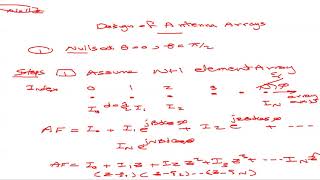 Design of Antenna Arrays
① Nulls at θ = 0, θ = π/2
Steps ① Assume N+1 element Array
Index 0 1 2 3 N
I₀ d I₁ I₂ array axis
AF = I₀ + I₁ e^{jβd cos θ} + I₂ e^{j2βd cos θ} + ---
I_N e^{jNβd cos θ}
AF = I₀ + I₁z + I₂z² + I₃z³ + --- I_N z^N
(z-z₁)(z-z₂)---(z-z_N)